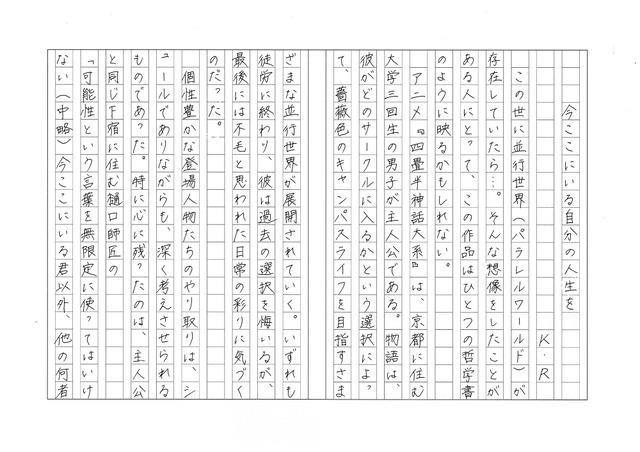 今ここにいる自分の人生を
K・R
この世に並行世界（パラレルワールド）が
存在していたら…。そんな想像をしたことが
ある人にとって、この作品はひとつの哲学書
のように映るかもしれない。
アニメ『四畳半神話大系』は、京都に住む
大学三回生の男子が主人公である。物語は、
彼がどのサークルに入るかという選択によっ
て、薔薇色のキャンパスライフを目指すさま
ざまな並行世界が展開されていく。いずれも
徒労に終わり、彼は過去の選択を悔いるが、
最後には不毛と思われた日常の彩りに気づく
のだった。
個性豊かな登場人物たちのやり取りは、シ
ュールでありながらも、深く考えさせられる
ものであった。特に心に残ったのは、主人公
と同じ下宿に住む樋口師匠の
「可能性という言葉を無限定に使ってはいけ
ない（中略）今ここにいる君以外、他の何者